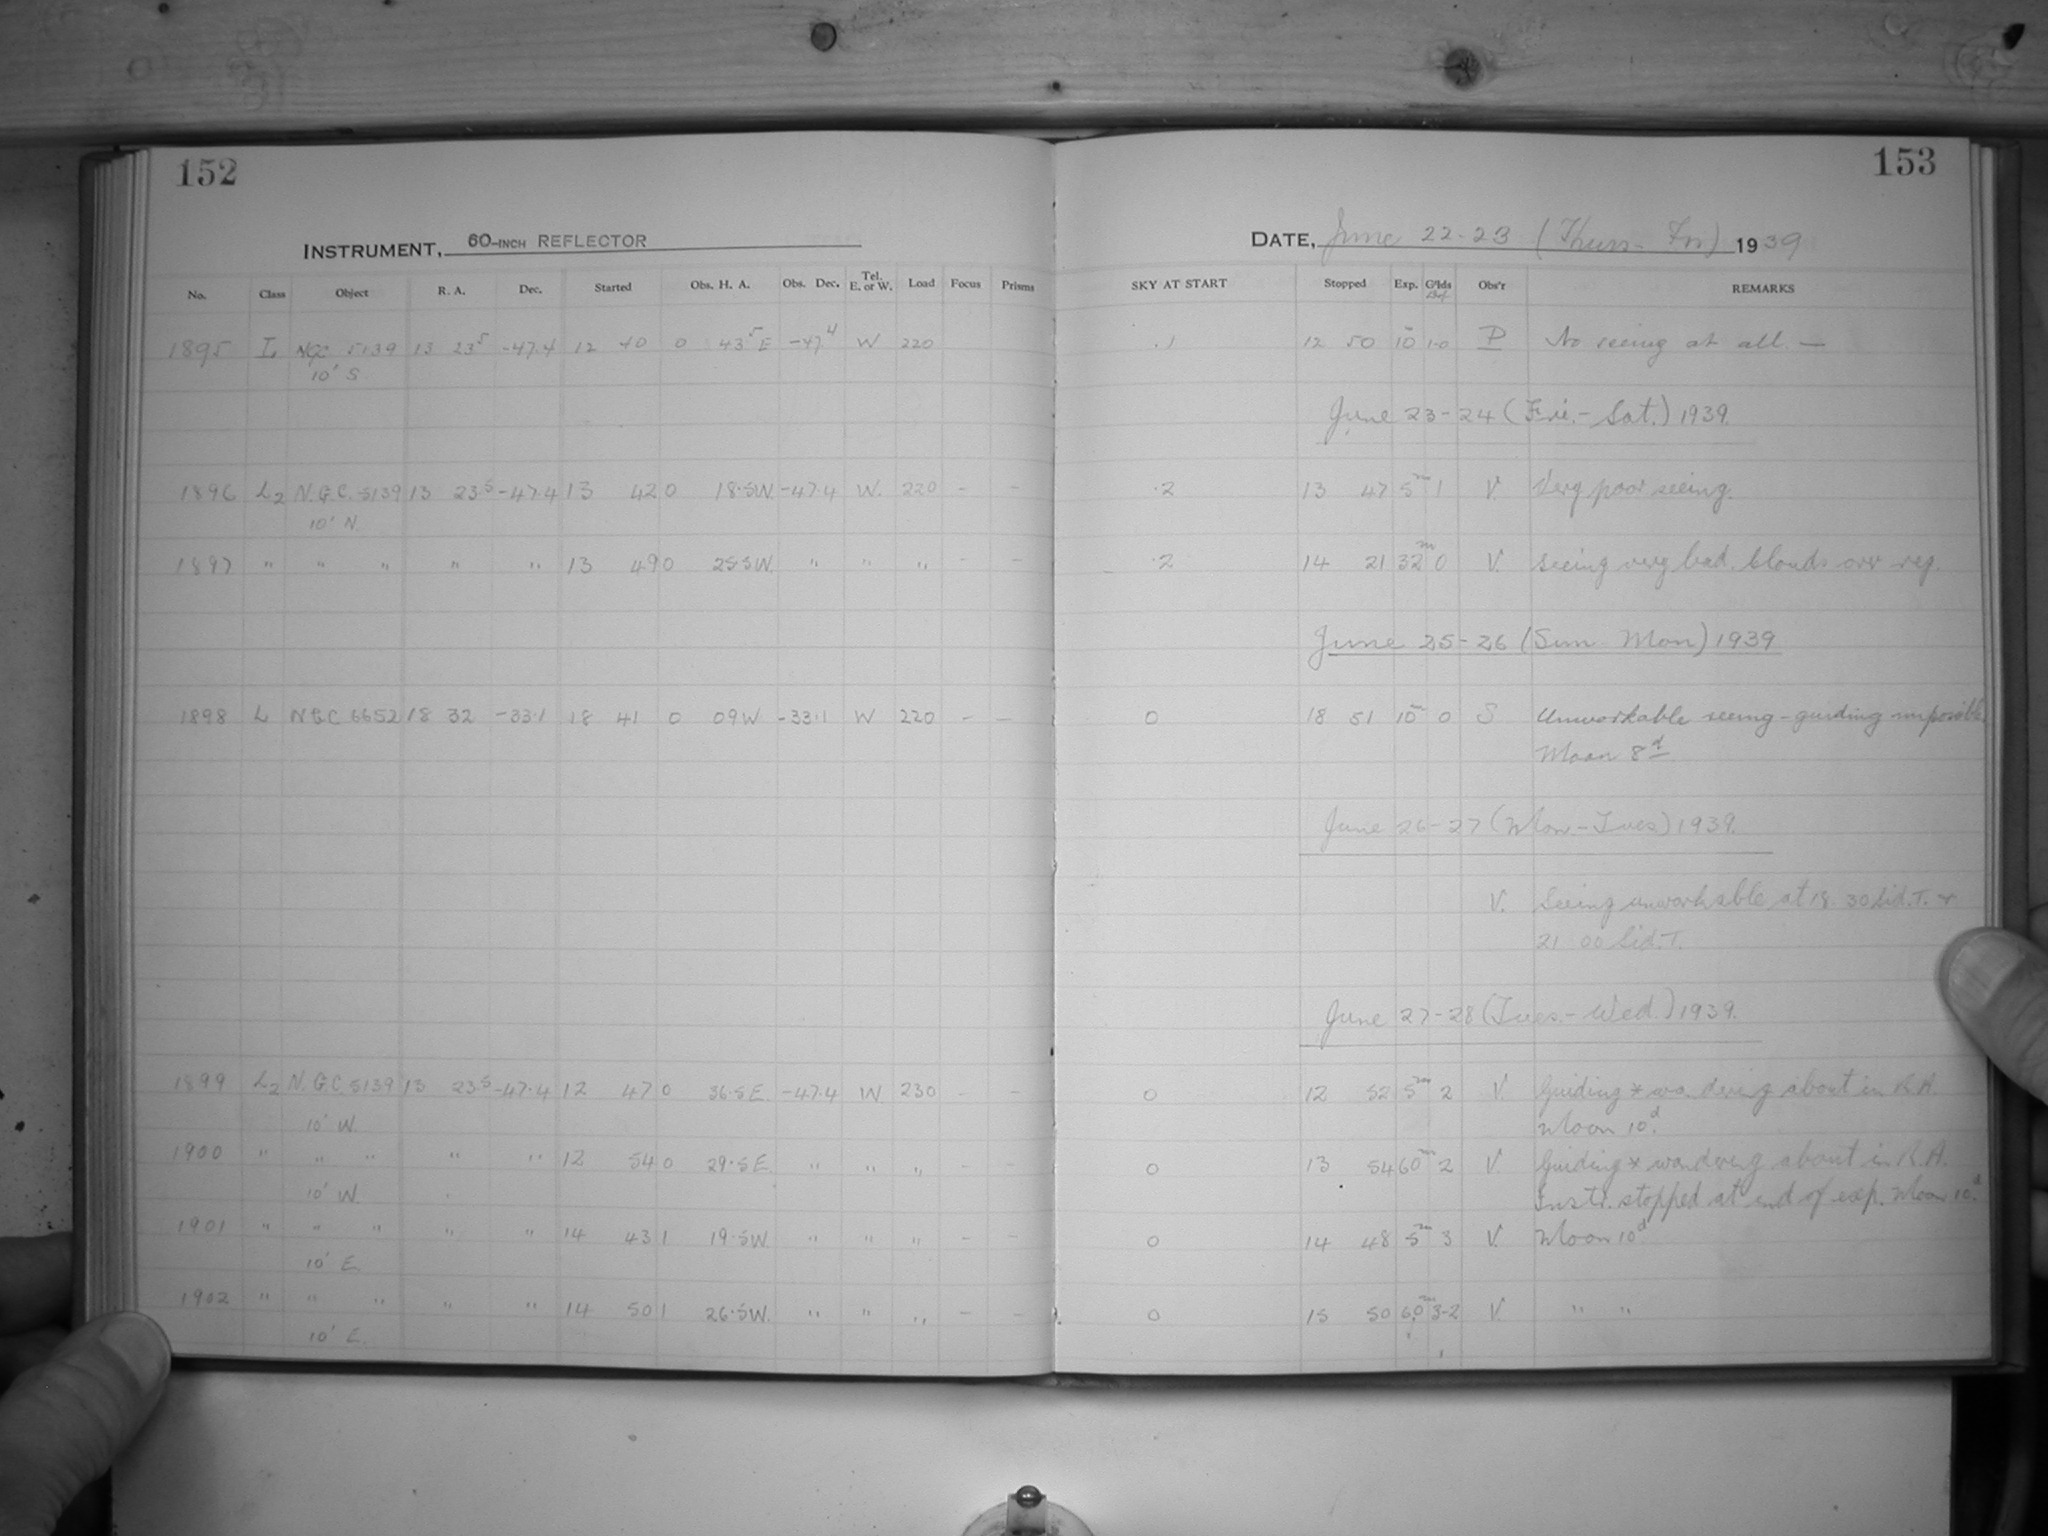 152
INSTRUMENT, 60-INCH REFLECTOR
No. Class Object R. A. Dec. Started Obs. H. A. Obs. Dec. Tel. E. or W. Load Focus Prisms
1895 L NGC 5139 13 23⁵ -47.4 12 40 0 43⁵ E -47⁴ W 220
10' S
1896 L2 N.G.C. 5139 13 23⁵ -47.4 13 42 0 18.5W. -47.4 W. 220 - -
10' N.
1897 " " " " " 13 49 0 25.5W. " " " - -
1898 L NGC 6652 18 32 -33.1 18 41 0 09W -33.1 W 220 - -
1899 L2 N.G.C. 5139 13 23⁵ -47.4 12 47 0 36.5E. -47.4 W. 230 - -
10' W.
1900 " " " " " 12 54 0 29.5E. " " " - -
10' W.
1901 " " " " " 14 43 1 19.5W. " " " - -
10' E.
1902 " " " " " 14 50 1 26.5W. " " " - -
10' E.
153
DATE, June 22-23 (Thurs-Fri) 1939
SKY AT START Stopped Exp. G'lds Obs'r REMARKS
.1 12 50 10ᵐ 1.0 P No seeing at all. —
June 23-24 (Fri.-Sat.) 1939.
.2 13 47 5ᵐ 1 V. Very poor seeing.
.2 14 21 32ᵐ 0 V. Seeing very bad. Clouds over reg.
June 25-26 (Sun-Mon) 1939
0 18 51 10ᵐ 0 S Unworkable seeing - guiding impossible
Moon 8ᵈ
June 26-27 (Mon-Tues) 1939.
V. Seeing unworkable at 18 30 Sid. T. &
21 00 Sid. T.
June 27-28 (Tues.-Wed.) 1939.
0 12 52 5ᵐ 2 V. Guiding * wandering about in R.A.
Moon 10ᵈ.
0 13 54 60ᵐ 2 V. Guiding * wandering about in R.A.
Instr. stopped at end of exp. Moon 10ᵈ.
0 14 48 5ᵐ 3 V. Moon 10ᵈ
0 15 50 60ᵐ 3-2 V. " "